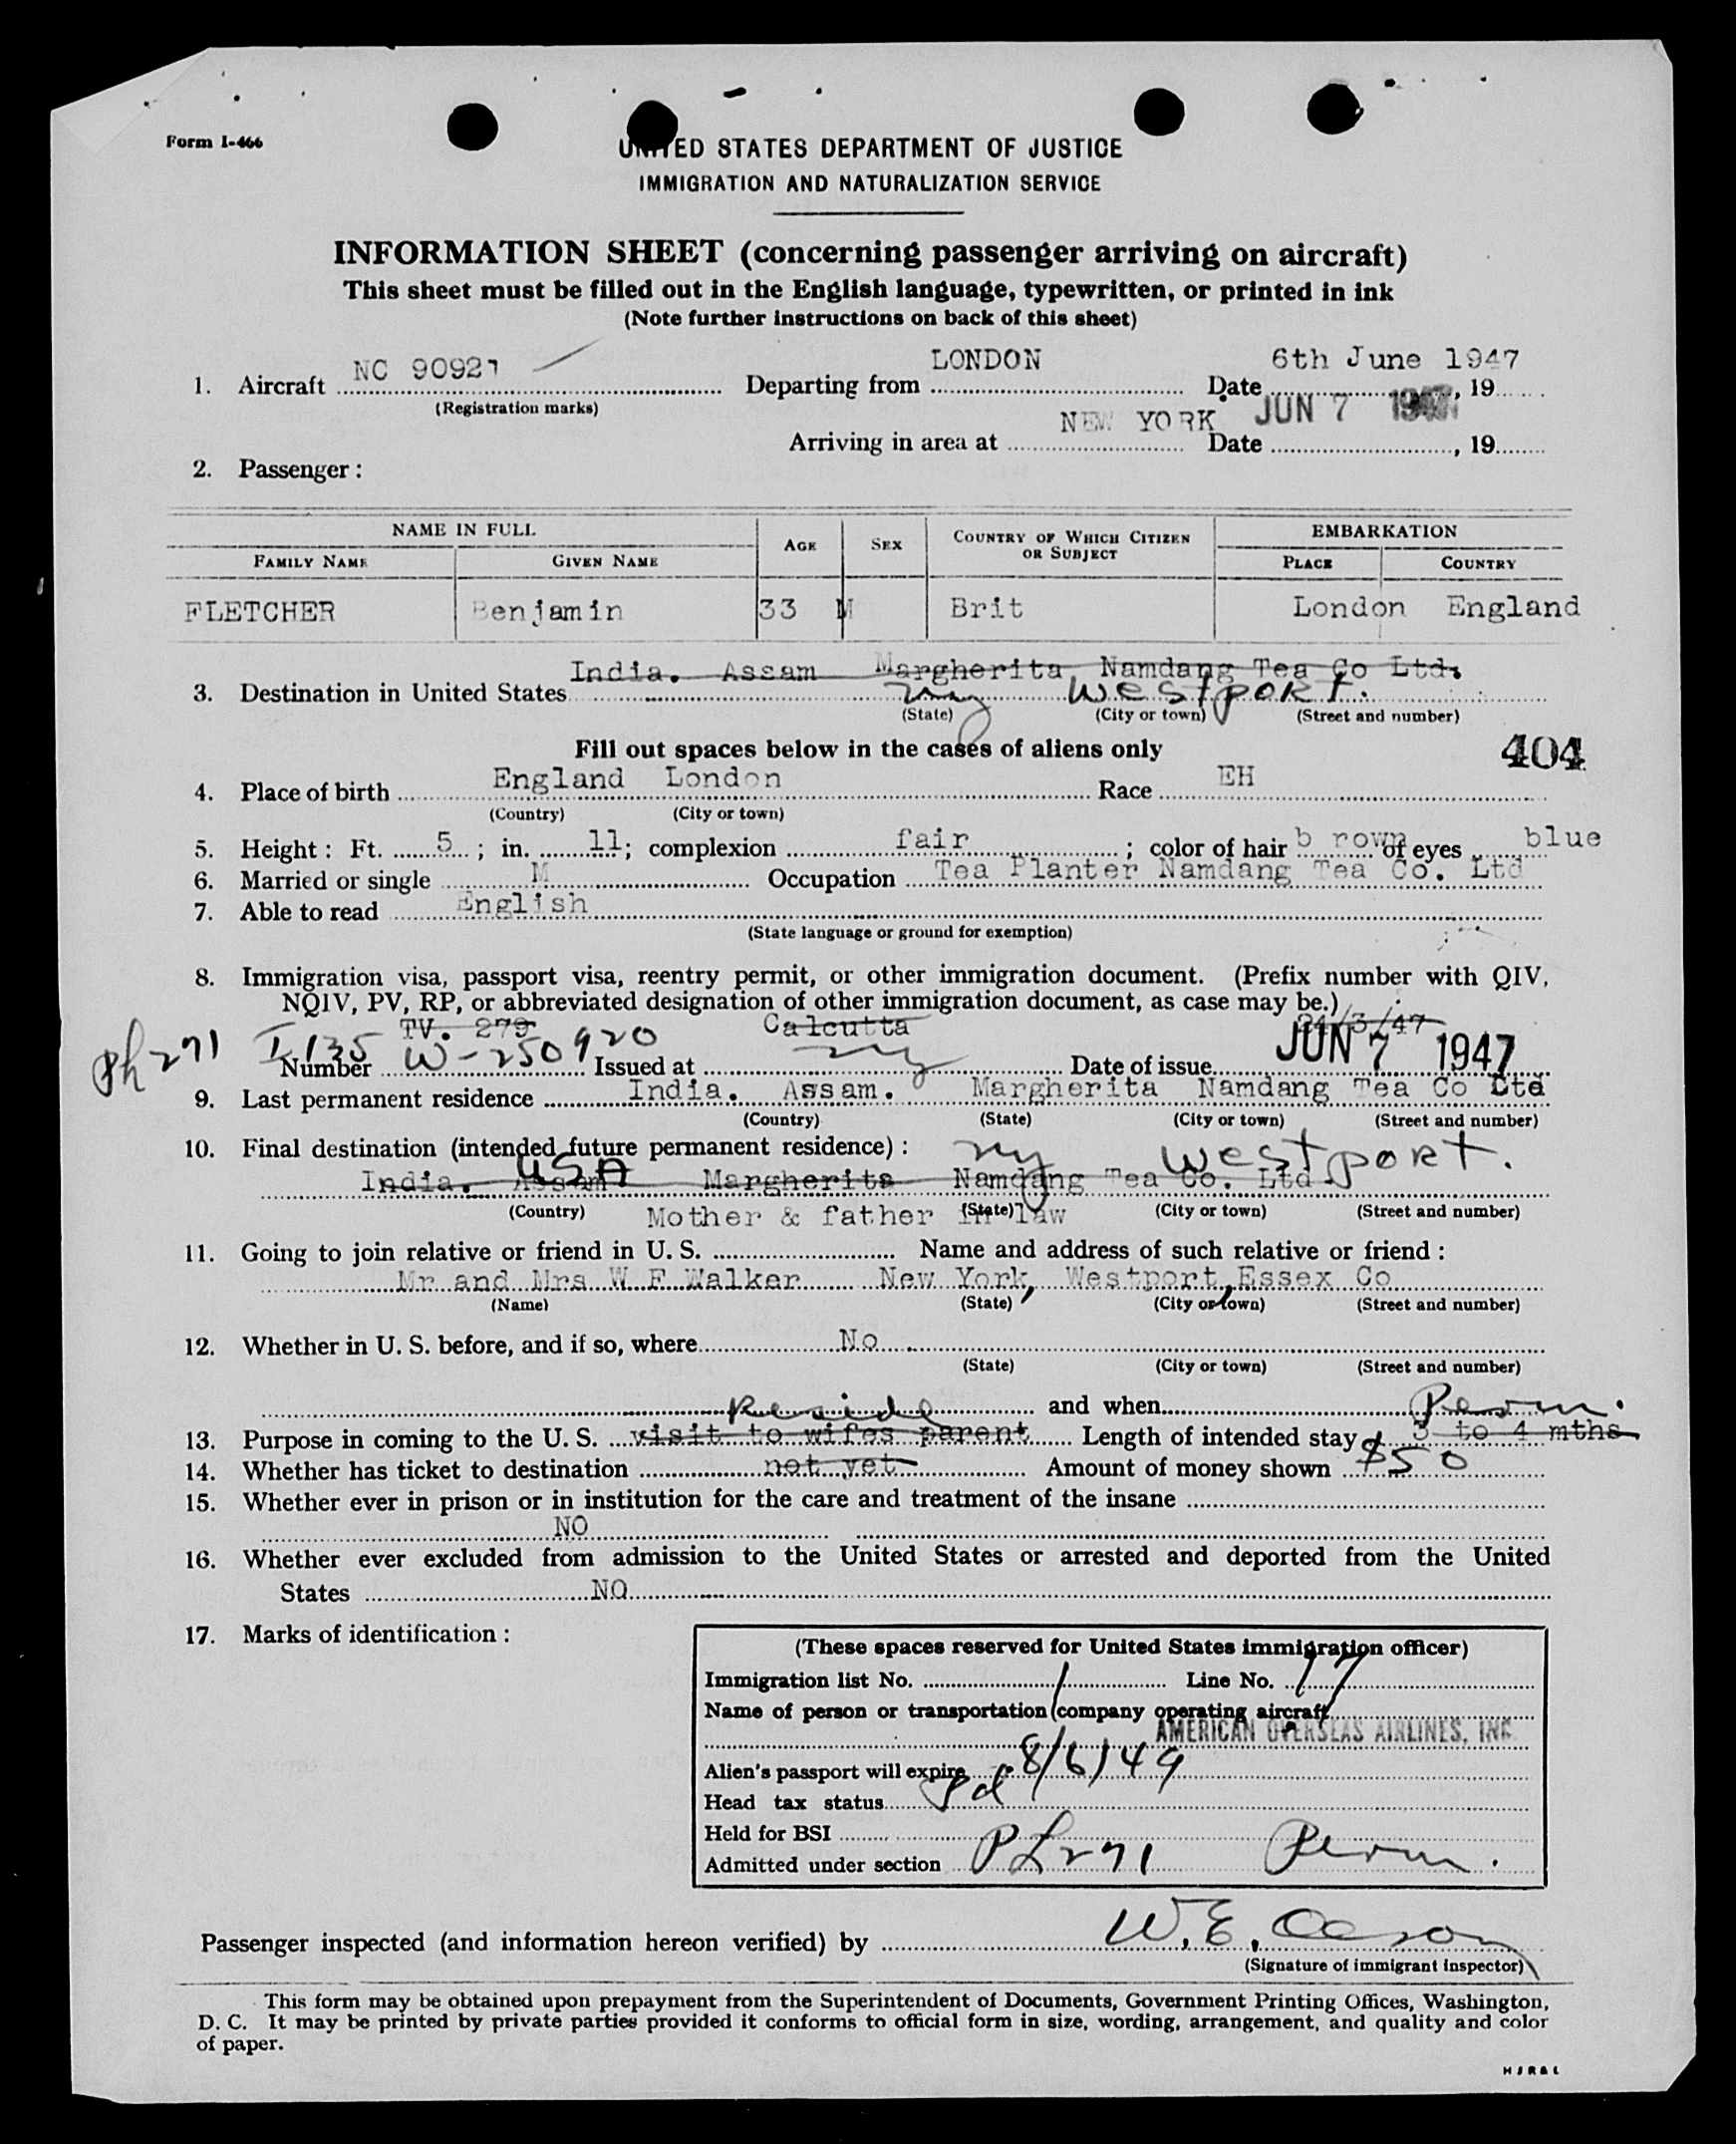 Form I-466
UNITED STATES DEPARTMENT OF JUSTICE
IMMIGRATION AND NATURALIZATION SERVICE
INFORMATION SHEET (concerning passenger arriving on aircraft)
This sheet must be filled out in the English language, typewritten, or printed in ink
(Note further instructions on back of this sheet)
1. Aircraft NC 90921 Departing from LONDON Date 6th June 1947, 19
(Registration marks)
Arriving in area at NEW YORK Date JUN 7 1947, 19
2. Passenger :
NAME IN FULL AGE SEX COUNTRY OF WHICH CITIZEN OR SUBJECT EMBARKATION
FAMILY NAME GIVEN NAME PLACE COUNTRY
FLETCHER Benjamin 33 M Brit London England
India. Assam Margherita Namdang Tea Co Ltd.
3. Destination in United States ny Westport.
(State) (City or town) (Street and number)
Fill out spaces below in the cases of aliens only 404
4. Place of birth England London Race EH
(Country) (City or town)
5. Height : Ft. 5 ; in. 11; complexion fair ; color of hair brown of eyes blue
6. Married or single M Occupation Tea Planter Namdang Tea Co. Ltd
7. Able to read English
(State language or ground for exemption)
8. Immigration visa, passport visa, reentry permit, or other immigration document. (Prefix number with QIV,
NQIV, PV, RP, or abbreviated designation of other immigration document, as case may be.)
TV. 279 Calcutta 24/3/47
Ph 271 I 135 Number W-250920 Issued at ny Date of issue JUN 7 1947
9. Last permanent residence India. Assam. Margherita Namdang Tea Co Ltd
(Country) (State) (City or town) (Street and number)
10. Final destination (intended future permanent residence) : ny Westport.
USA
India. Assam Margherita Namdang Tea Co. Ltd
(Country) (State) (City or town) (Street and number)
Mother & father in law
11. Going to join relative or friend in U. S. Name and address of such relative or friend :
Mr and Mrs W F Walker New York, Westport, Essex Co
(Name) (State) (City or town) (Street and number)
12. Whether in U. S. before, and if so, where No
(State) (City or town) (Street and number)
Reside and when Perm.
13. Purpose in coming to the U. S. visit to wifes parent Length of intended stay 3 to 4 mths
14. Whether has ticket to destination not yet Amount of money shown $50
15. Whether ever in prison or in institution for the care and treatment of the insane
NO
16. Whether ever excluded from admission to the United States or arrested and deported from the United
States NO
17. Marks of identification :
(These spaces reserved for United States immigration officer)
Immigration list No. 1 Line No. 17
Name of person or transportation company operating aircraft
AMERICAN OVERSEAS AIRLINES, INC.
Alien's passport will expire 8/6/49
Head tax status Pd
Held for BSI
Admitted under section Ph 271 Perm.
Passenger inspected (and information hereon verified) by W. E.
(Signature of immigrant inspector)
This form may be obtained upon prepayment from the Superintendent of Documents, Government Printing Offices, Washington,
D. C. It may be printed by private parties provided it conforms to official form in size, wording, arrangement, and quality and color
of paper.
H S R & L